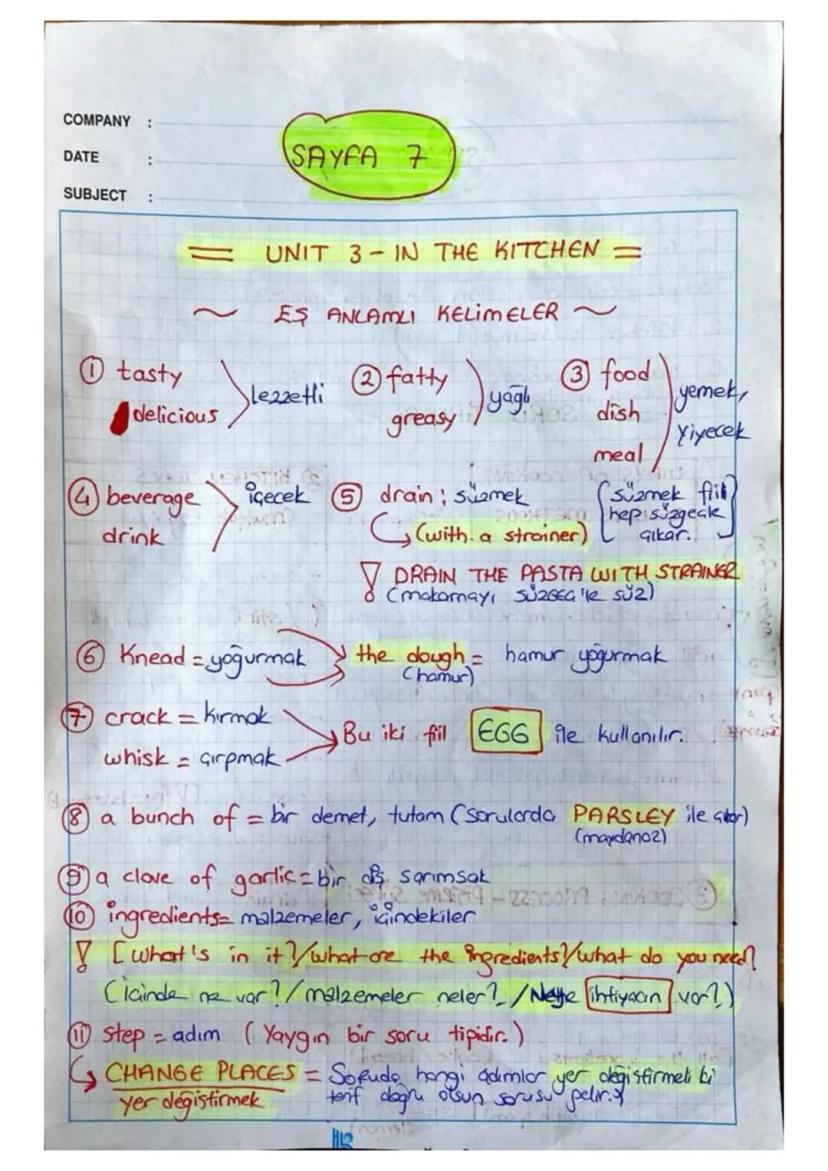 COMPANY :
DATE :
SUBJECT :
SAYFA 7
= UNIT 3 - IN THE KITCHEN =
~ EŞ ANLAMLI KELİMELER ~
① tasty
delicious
lezzetli
② fatty
greasy
yağlı
③ food
dish
meal
yemek,
yiyecek
④ beverage
drink
içecek
⑤ drain : süzmek
(with a strainer)
[süzmek fiili
hep süzgeçle
çıkar.]
! DRAIN THE PASTA WITH STRAINER
(makarnayı SÜZGEÇ'le SÜZ)
⑥ Knead = yoğurmak
the dough = hamur yoğurmak
(hamur)
⑦ crack = kırmak
whisk = çırpmak
Bu iki fiil EGG ile kullanılır.
⑧ a bunch of = bir demet, tutam (sorularda PARSLEY ile çıkar)
(maydanoz)
⑨ a clove of garlic = bir diş sarımsak
⑩ ingredients = malzemeler, içindekiler
! [what's in it?/what are the ingredients?/what do you need?
(İçinde ne var?/malzemeler neler?/Neye ihtiyacın var?)
⑪ step = adım (Yaygın bir soru tipidir.)
CHANGE PLACES = Soruda hangi adımlar yer değiştirmeli ki
yer değiştirmek
tarif doğru olsun sorusu gelir.